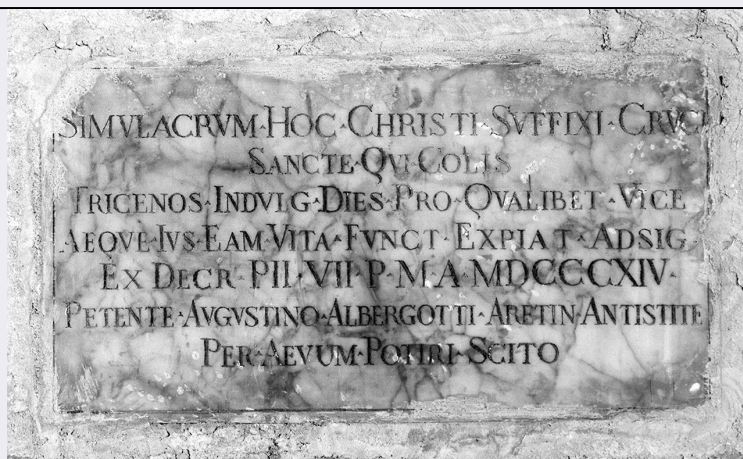 SIMVLACRVM·HOC·CHRISTI·SVFFIXI·CRVCI
SANCTE·QVI·COLIS
TRICENOS·INDVLG·DIES·PRO·QVALIBET·VICE
AEQVE·IVS·EAM·VITA·FVNCT·EXPIAT·ADSIG
EX DECR·PII·VII·P·M·A·MDCCCXIV·
PETENTE·AVGVSTINO·ALBERGOTTI·ARETIN·ANTISTITE
PER·AEVUM·POTIRI·SCITO